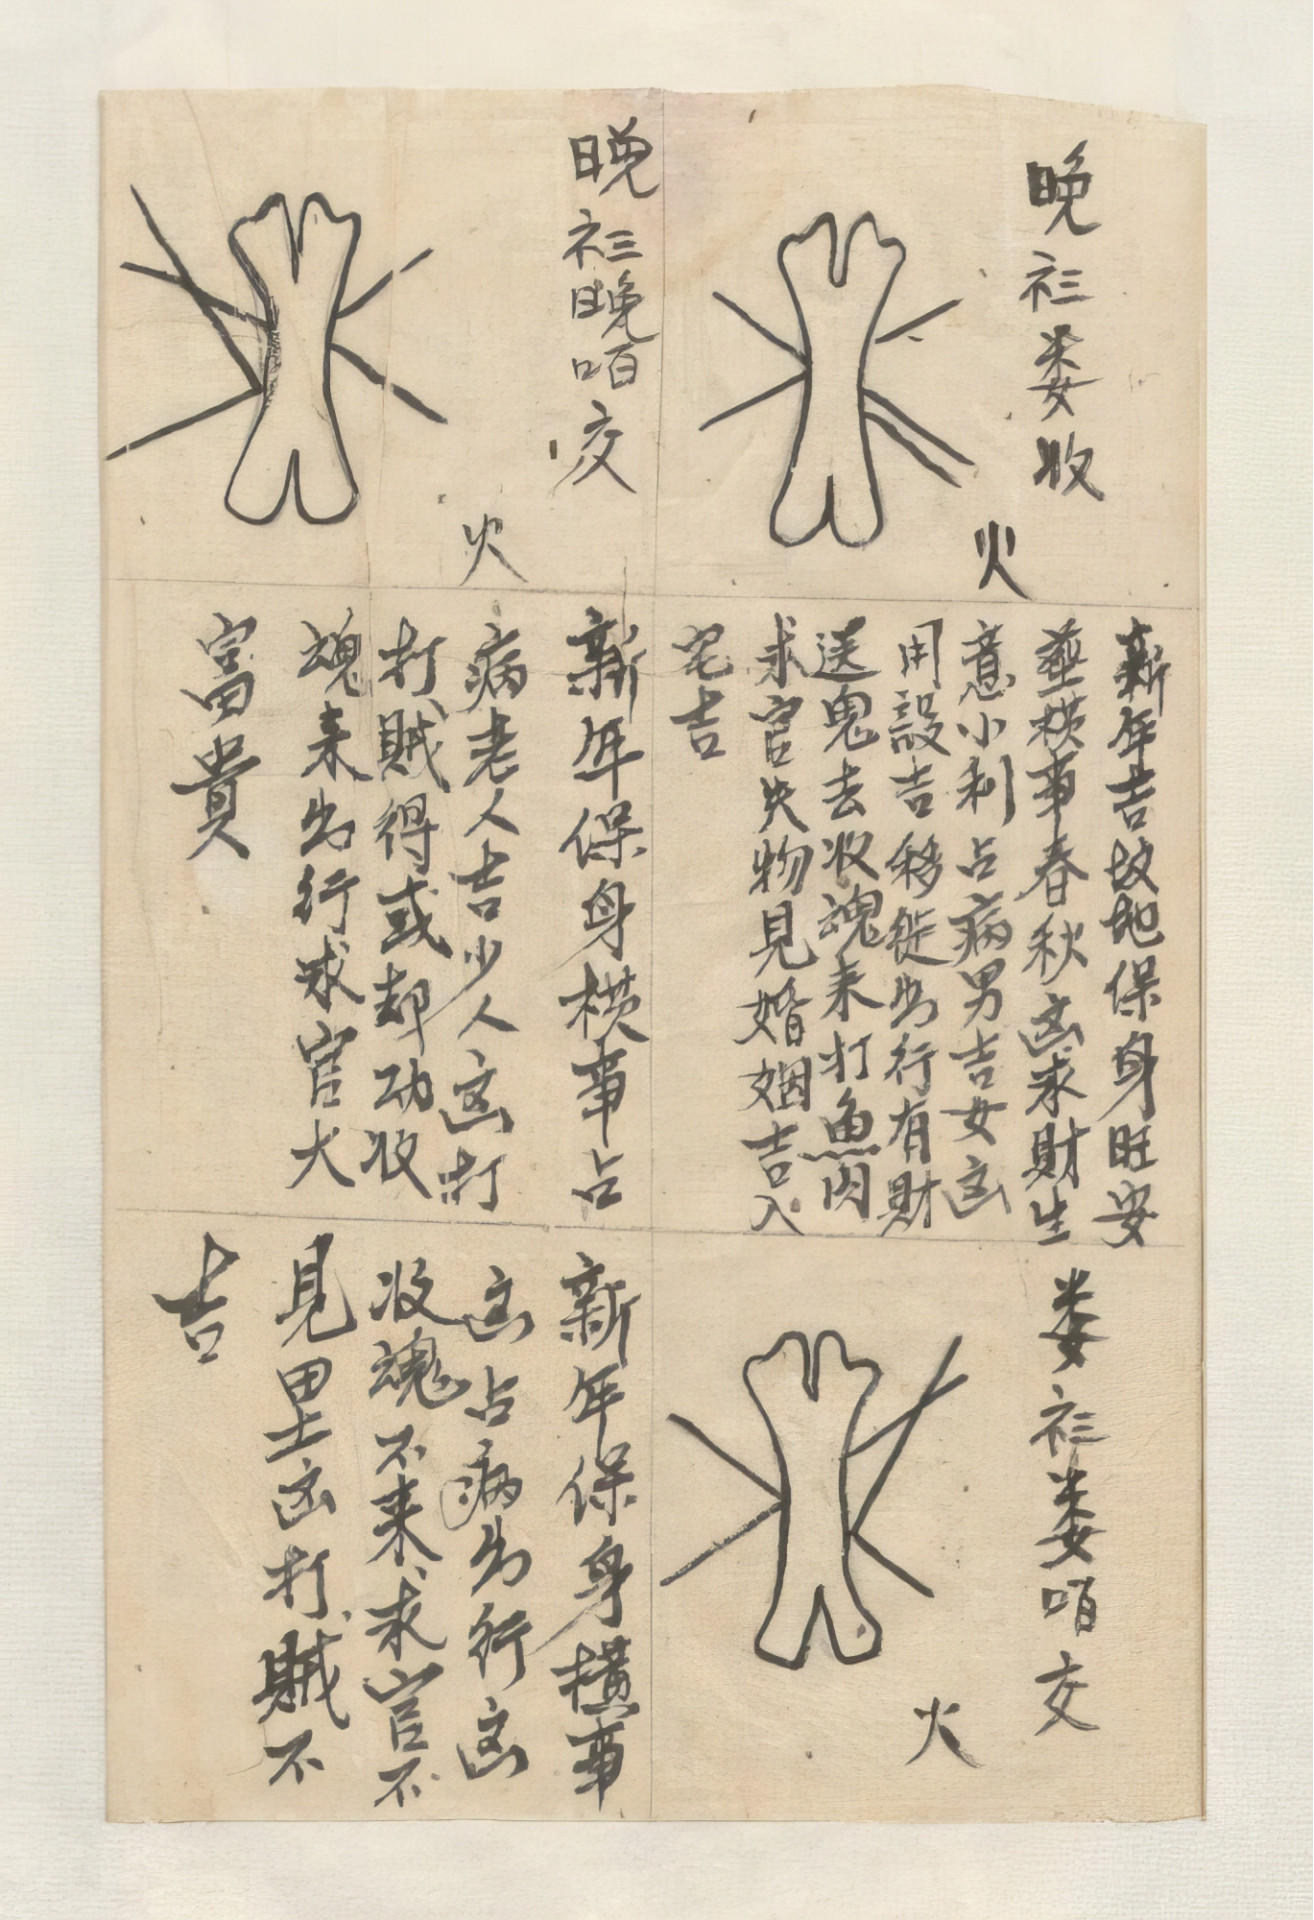 晚衫娄收
火
新年吉坟地保身旺安
葬横事春秋凶求財生
意小利占病男吉女凶
用設吉移徙出行有財
送鬼去收魂来打魚肉
求官失物見婚姻吉入
宅吉
娄衫娄咟交
火
晚衫晚咟交
火
新年保身横事占
病老人吉少人凶打
打賊得或却功收
魂来出行求官大
富貴
新年保身横事
凶占病出行凶
收魂不来求官不
見里凶打賊不
吉